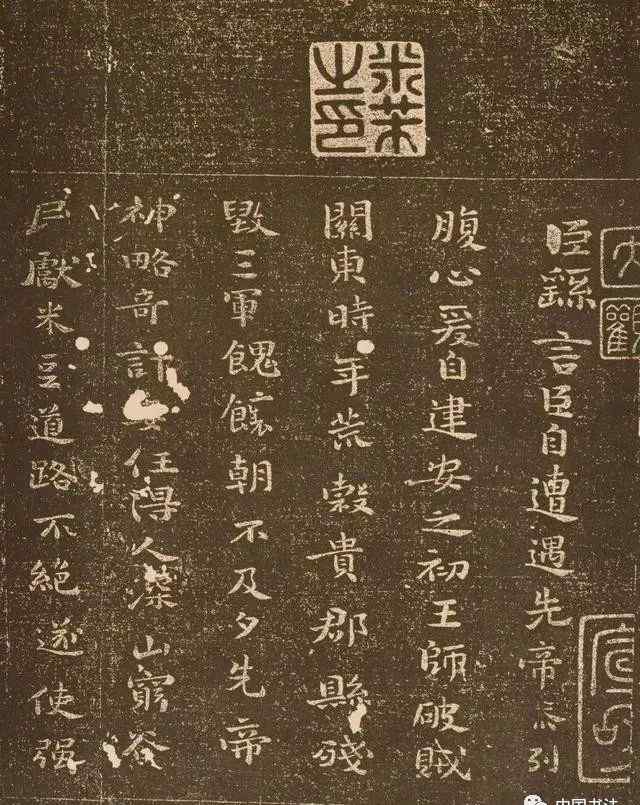 米芾之印
大觀
臣繇言臣自遭遇先帝忝列
腹心爰自建安之初王師破賊
關東時年荒穀貴郡縣殘
毀三軍餽饟朝不及夕先帝
神略奇計委任得人深山窮谷
民獻米豆道路不絕遂使强
中国书法